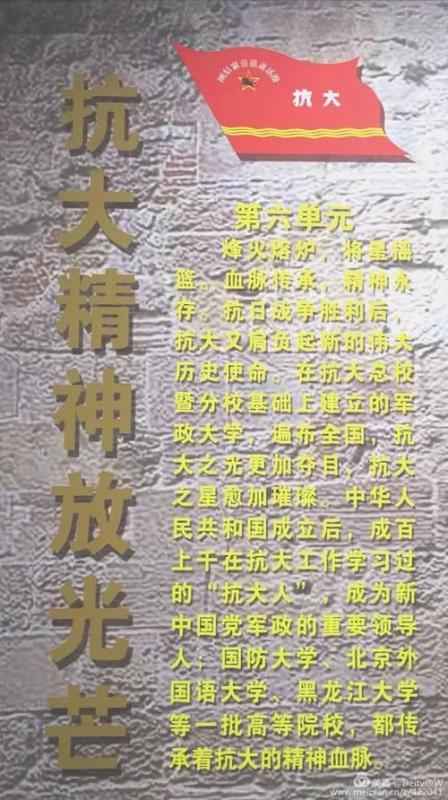 抗大精神放光芒
抗大
第六单元
烽火熔炉，将星摇
篮。血脉传承，精神永
存。抗日战争胜利后，
抗大又肩负起新的伟大
历史使命。在抗大总校
暨分校基础上建立的军
政大学，遍布全国，抗
大之光更加夺目、抗大
之星愈加璀璨。中华人
民共和国成立后，成百
上千在抗大工作学习过
的“抗大人”，成为新
中国党军政的重要领导
人；国防大学、北京外
国语大学、黑龙江大学
等一批高等院校，都传
承着抗大的精神血脉。
美篇 @Deity@W
www.meipian.cn/c/422041